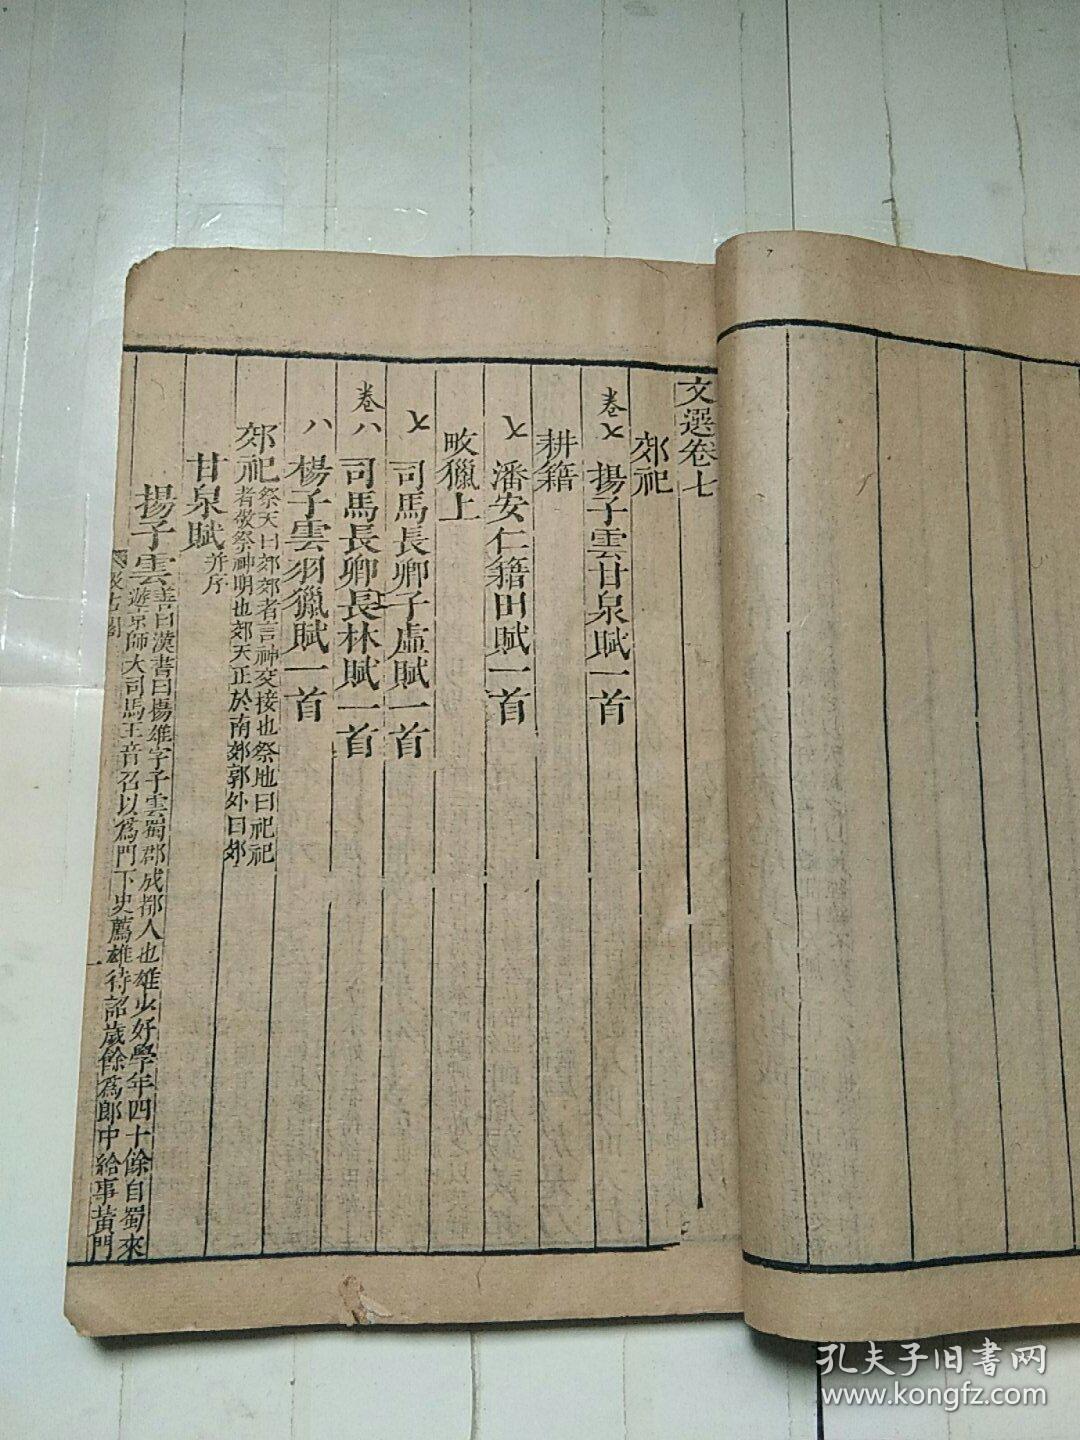 文選卷七
郊祀
卷七 揚子雲甘泉賦一首
耕籍
七 潘安仁籍田賦一首
畋獵上
七 司馬長卿子虛賦一首
卷八 司馬長卿長林賦一首
上
八 楊子雲羽獵賦一首
郊祀
祭天曰郊郊者言神交接也祭地曰祀祀
者敬祭神明也郊天正於南郊郭外曰郊
甘泉賦 并序
揚子雲
善曰漢書曰揚雄字子雲蜀郡成都人也雄少好學年四十餘自蜀來
遊京師大司馬王音召以為門下史薦雄待詔歲餘為郎中給事黃門
一
孔夫子旧書网
www.kongfz.com